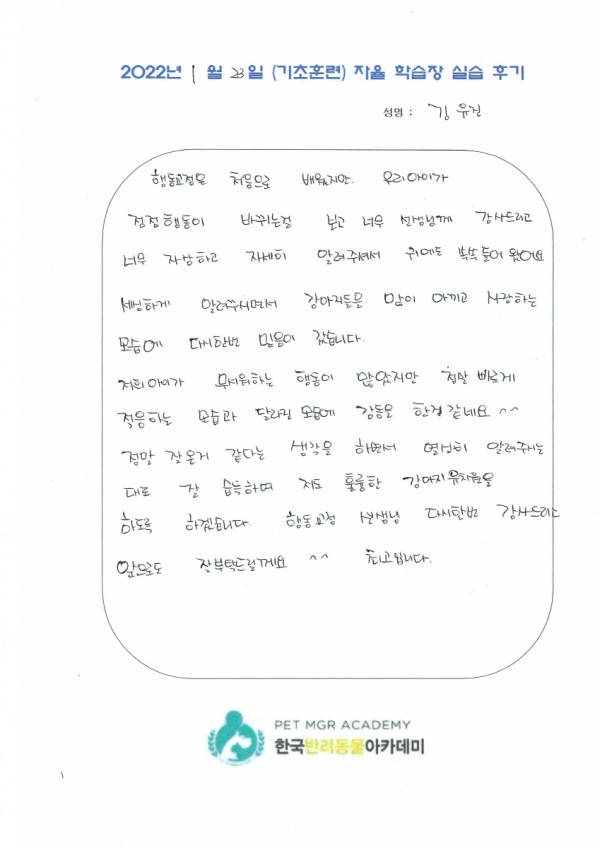 2022년 1월 23일 (기초훈련) 자율 학습장 실습 후기
성명 : 김유진
행동교정을 처음으로 배웠지만. 우리아이가
점점행동이 바뀌는걸 보고 너무 선생님께 감사드리고
너무 자상하고 자세히 알려주셔서 뇌에도 쏙쏙들어왔어요
세심하게 알려주시면서 강아지들은 많이 아끼고 사랑하는
모습에 다시한번 믿음이 갔습니다.
저희아이가 무서워하는 행동이 많았지만 정말 빠르게
적응하는 모습과 달라진 모습에 감동은 한것같네요 ^^
정말 잘온거 같다는 생각을 하면서 열심히 알려주시는
대로 잘 습득하며 저도 훌륭한 강아지유치원을
하도록 하겠습니다. 행동교정 선생님 다시한번 감사드리고
앞으로도 잘부탁드릴께요 ^^ 최고입니다.
PET MGR ACADEMY
한국반려동물아카데미